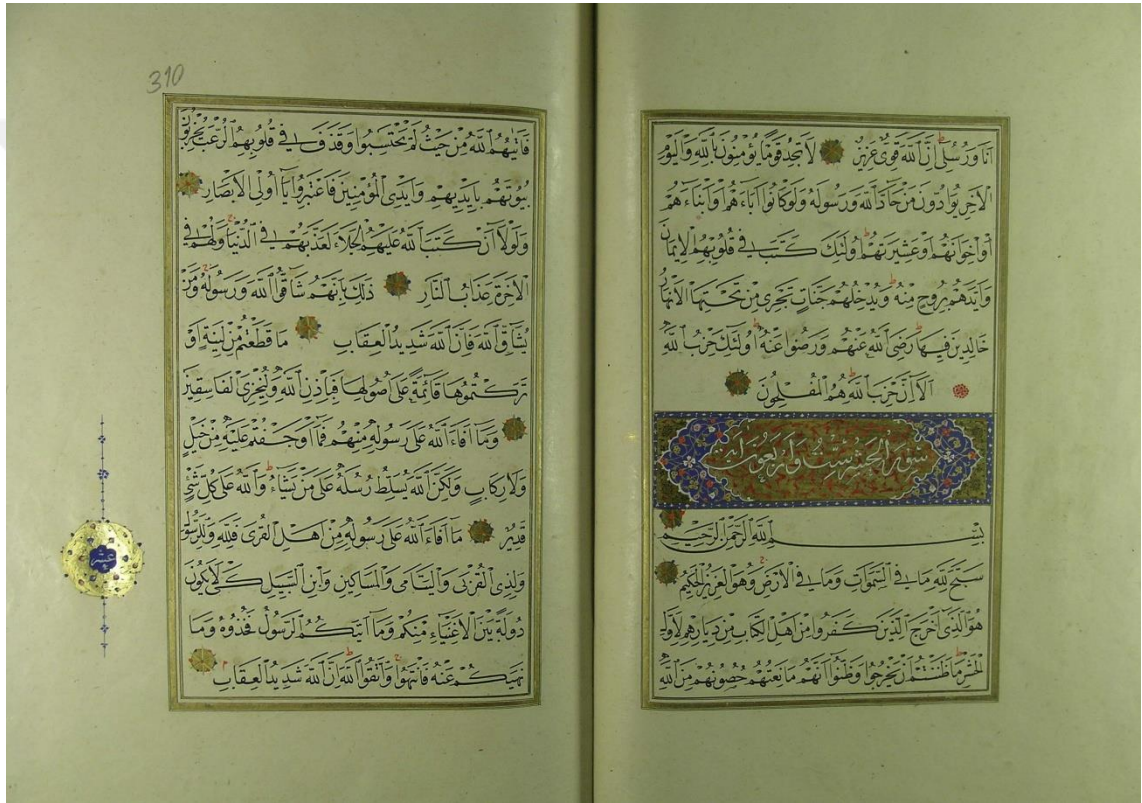 انا ورسلي ان الله قوي عزيز لا تجد قوما يؤمنون بالله واليوم
الاخر يوادون من حاد الله ورسوله ولو كانوا اباءهم او ابناءهم
او اخوانهم او عشيرتهم اولئك كتب في قلوبهم الايمان
وايدهم بروح منه ويدخلهم جنات تجري من تحتها الانهار
خالدين فيها رضي الله عنهم ورضوا عنه اولئك حزب الله
الا ان حزب الله هم المفلحون
سورة الحشر
بسم الله الرحمن الرحيم
سبح لله ما في السموات وما في الارض وهو العزيز الحكيم
هو الذي اخرج الذين كفروا من اهل الكتاب من ديارهم لاول
الحشر ما ظننتم ان يخرجوا وظنوا انهم مانعتهم حصونهم من الله
310
فاتيهم الله من حيث لم يحتسبوا وقذف في قلوبهم الرعب يخربون
بيوتهم بايديهم وايدي المؤمنين فاعتبروا يا اولي الابصار
ولولا ان كتب الله عليهم الجلاء لعذبهم في الدنيا ولهم في
الاخرة عذاب النار ذلك بانهم شاقوا الله ورسوله ومن
يشاق الله فان الله شديد العقاب ما قطعتم من لينة او
تركتموها قائمة على اصولها فباذن الله وليخزي الفاسقين
وما افاء الله على رسوله منهم فما اوجفتم عليه من خيل
ولا ركاب ولكن الله يسلط رسله على من يشاء والله على كل شئ
قدير ما افاء الله على رسوله من اهل القرى فلله وللرسول
ولذي القربى واليتامى والمساكين وابن السبيل كي لا يكون
دولة بين الاغنياء منكم وما اتيكم الرسول فخذوه وما
نهيكم عنه فانتهوا واتقوا الله ان الله شديد العقاب